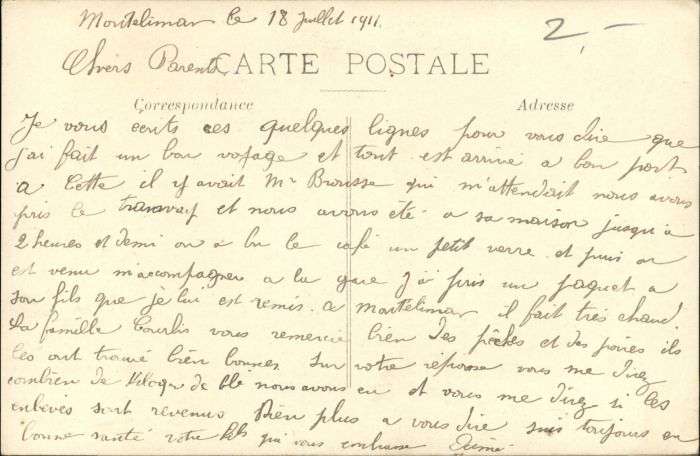 Montelimar le 18 Juillet 1911.
2,-
Chers Parents
CARTE POSTALE
Correspondance
Adresse
Je vous ecrits ces quelques lignes pour vous dire que
j'ai fait un bon voyage et tout est arrivé a bon port
a Cette il y avait Mr Brousse qui m'attendait nous avons
pris le tramway et nous avons été a sa maison jusqu'à
2 heures et demi on a bu le café un petit verre et puis on
est venu m'accompagner a la gare j'ai pris un paquet a
son fils que je lui est remis. a Montelimar il fait très chaud.
La famille vous remercie bien des pêches et des poires ils
les ont trouvé bien bonnes. Sur votre réponse vous me direz
combien de de blé nous avons eu et vous me direz si les
sont revenus Rien plus a vous dire suis toujours en
bonne santé votre fils qui vous embrasse Aimé